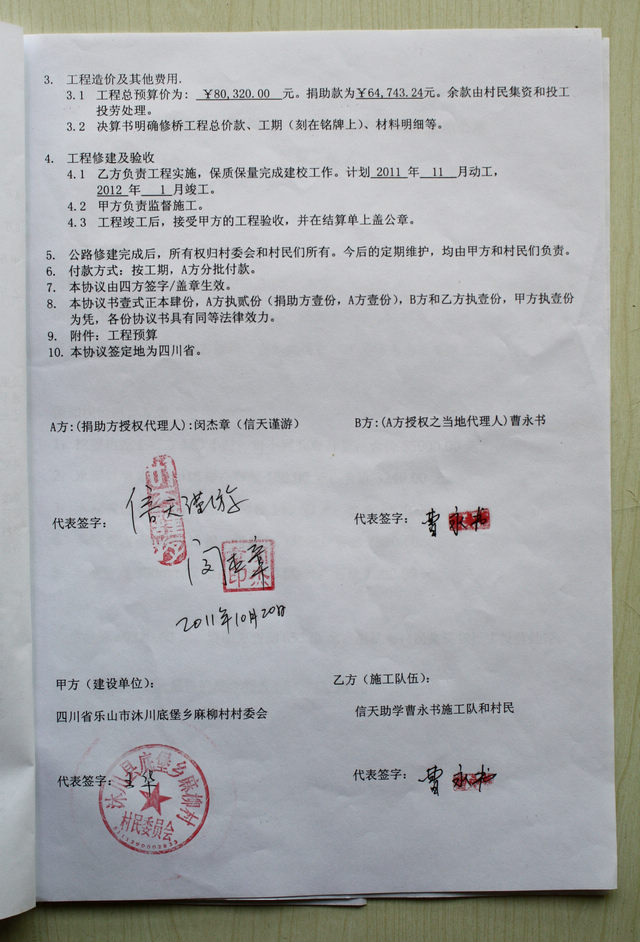 3. 工程造价及其他费用.
3.1 工程总预算价为: ￥80,320.00 元。捐助款为￥64,743.24元。余款由村民集资和投工
投劳处理。
3.2 决算书明确修桥工程总价款、工期（刻在铭牌上）、材料明细等。
4. 工程修建及验收
4.1 乙方负责工程实施，保质保量完成建校工作。计划 2011 年 11 月动工，
2012 年 1 月竣工。
4.2 甲方负责监督施工。
4.3 工程竣工后，接受甲方的工程验收，并在结算单上盖公章。
5. 公路修建完成后，所有权归村委会和村民们所有。今后的定期维护，均由甲方和村民们负责。
6. 付款方式：按工期，A方分批付款。
7. 本协议由四方签字/盖章生效。
8. 本协议书壹式正本肆份，A方执贰份（捐助方壹份，A方壹份），B方和乙方执壹份，甲方执壹份
为凭，各份协议书具有同等法律效力。
9. 附件：工程预算
10. 本协议签定地为四川省。
A方:(捐助方授权代理人):闵杰章（信天谨游）
B方:(A方授权之当地代理人)曹永书
代表签字：
信天谨游
闵杰章
2011年10月20日
代表签字：
曹永书
甲方（建设单位）：
四川省乐山市沐川底堡乡麻柳村村委会
代表签字：
王华
沐川县底堡乡麻柳村
村民委员会
乙方（施工队伍）：
信天助学曹永书施工队和村民
代表签字：
曹永书